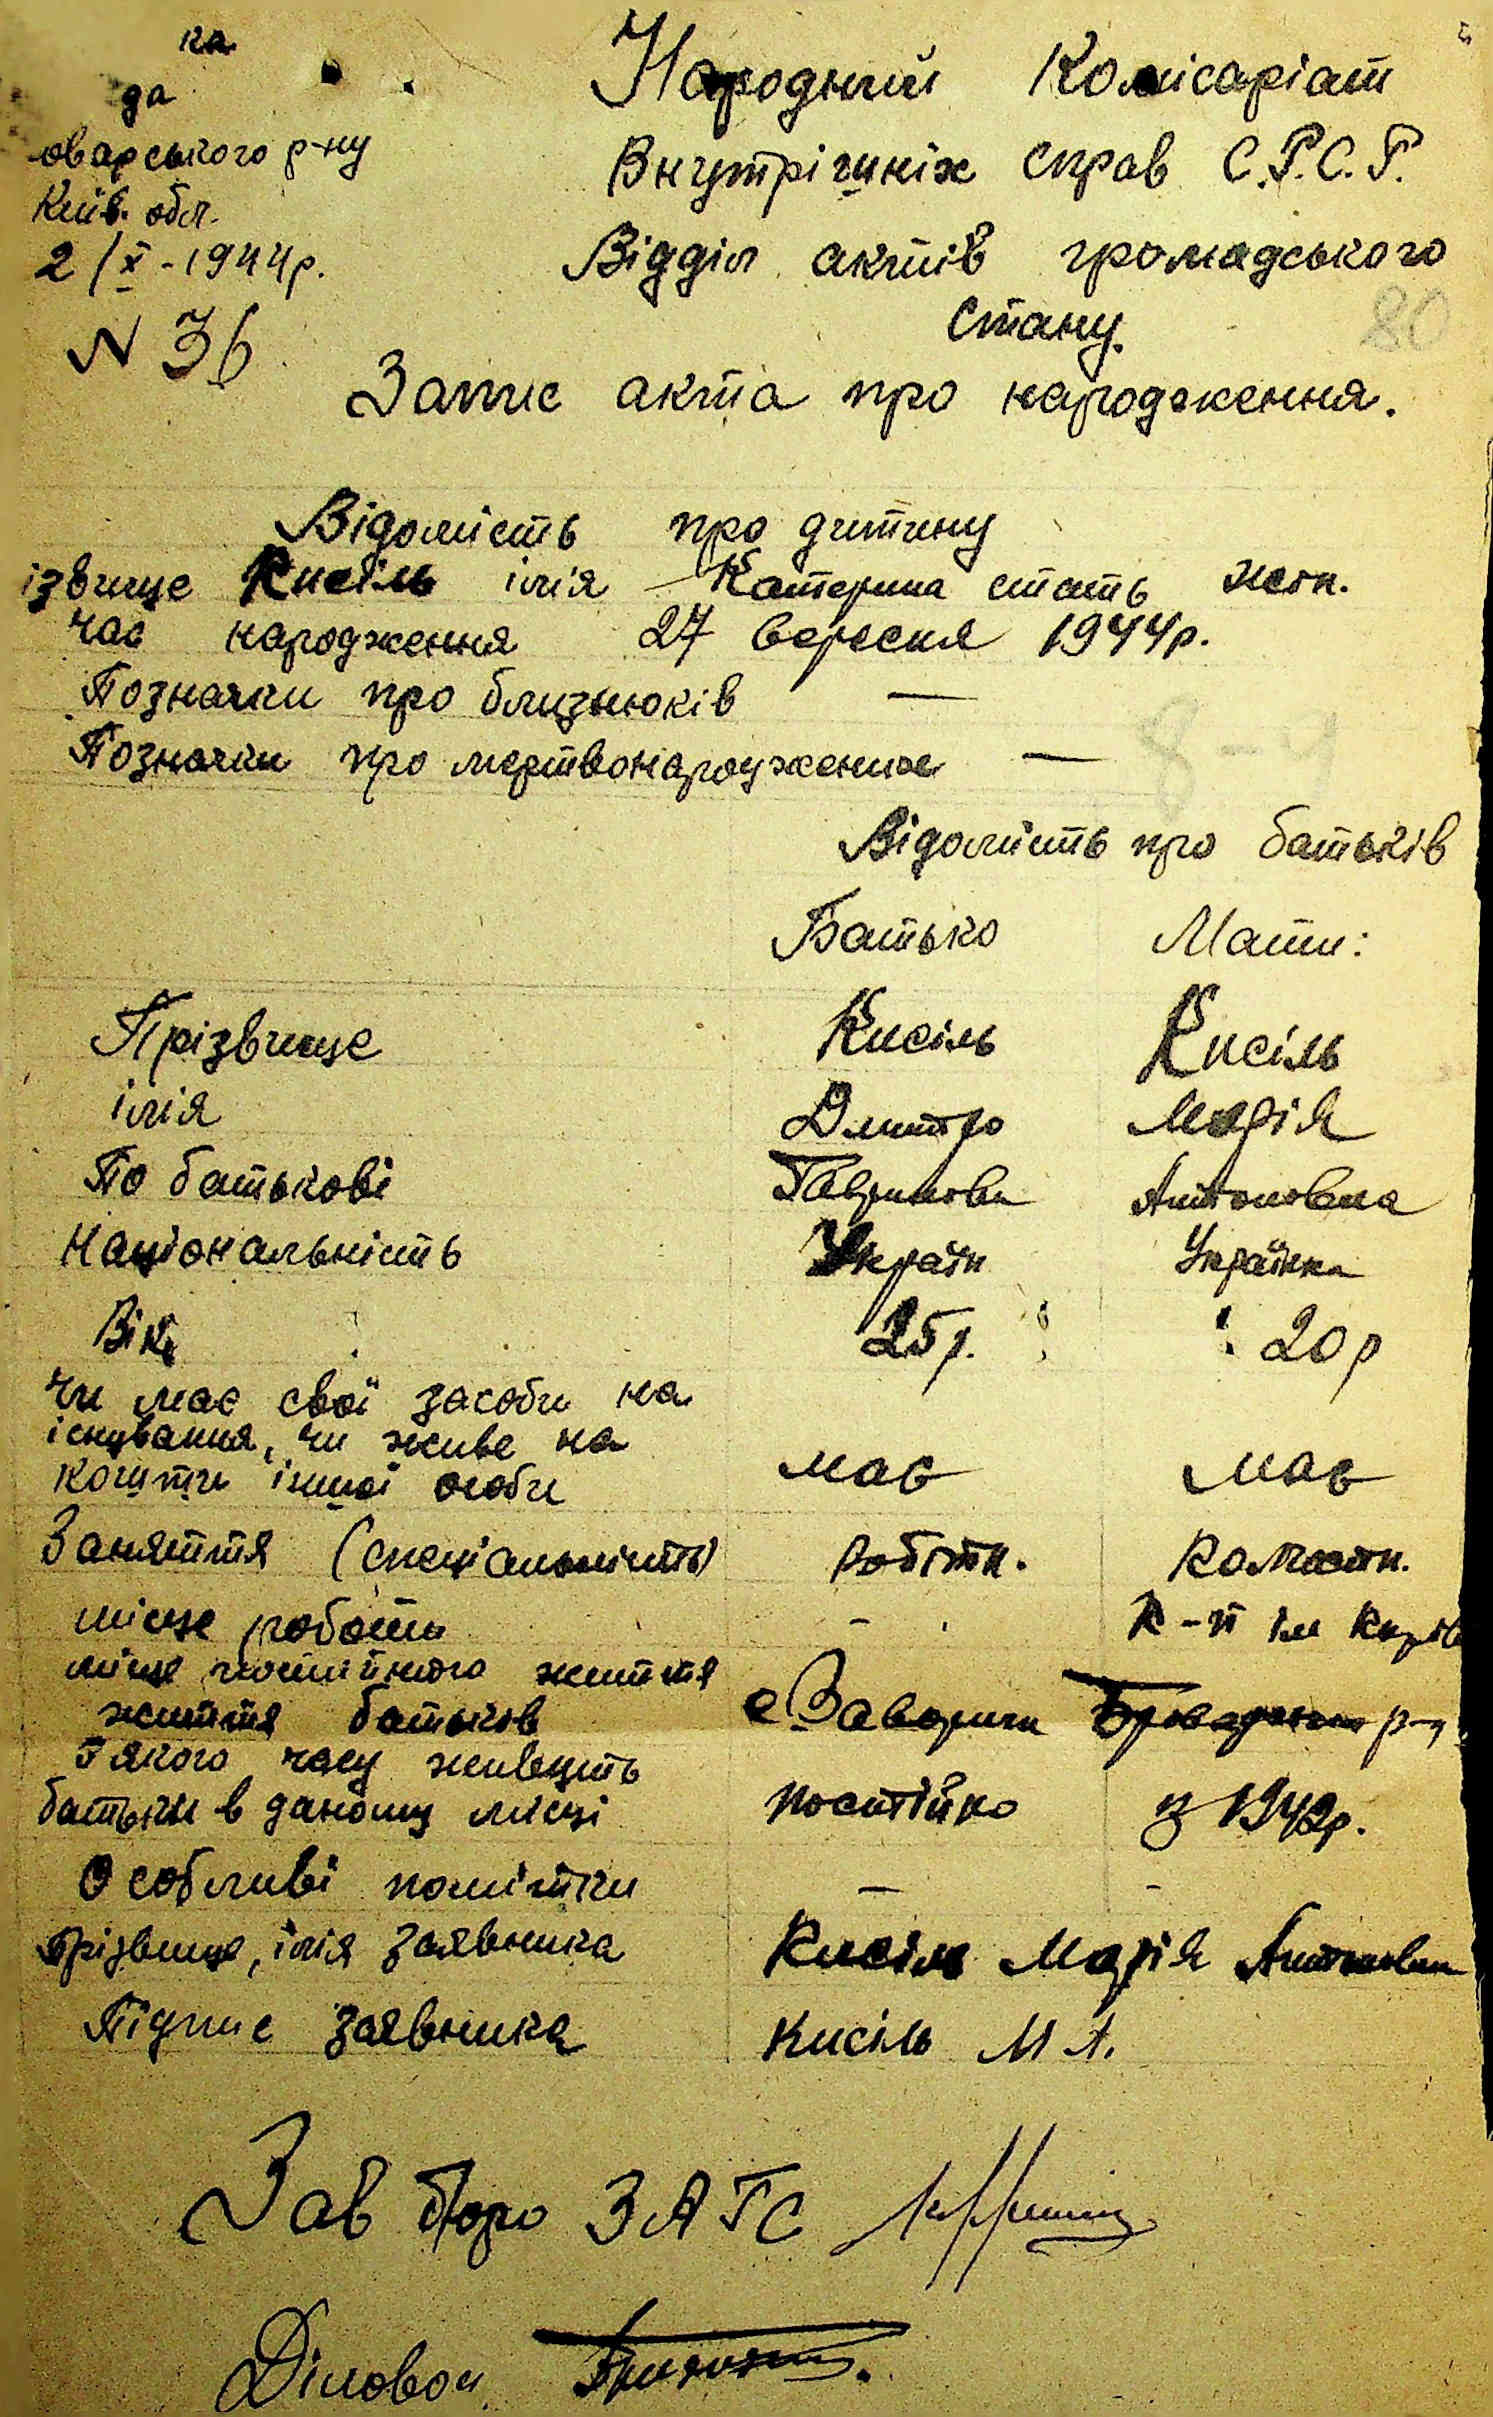 ка
да
оварського р-ну
Київ. обл.
2/X - 1944р.
N 36
Народний Комісаріат
Внутрішніх справ С.Р.С.Р.
Відділ актів громадського
стану.
80
Запис акта про народження.
Відомість про дитину
ізвище Кисіль імія Катерина стать жін.
час народження 27 вересня 1944р.
Позначки про близнюків —
Позначки про мертвонароджених —
Відомість про батьків
Батько Мати:
Прізвище Кисіль Кисіль
імія Дмитро Марія
По батькові Антоновна
Національність Україн Українка
Вік 25р. 20р
Чи має свої засоби на
існування, чи живе на
кошти іншої особи має має
Заняття (спеціальність) робітн. колхозн.
місце роботи - к-п ім
місце постійного життя
життя батьків с Заворичі Броварського р-н
З якого часу живуть
батьки в даному місці постійно з 1942р.
Особливі помітки — -
прізвище, імія заявника Кисіль Марія Антоновна
Підпис заявника Кисіль М А.
Зав бюро ЗАГС
Діловод